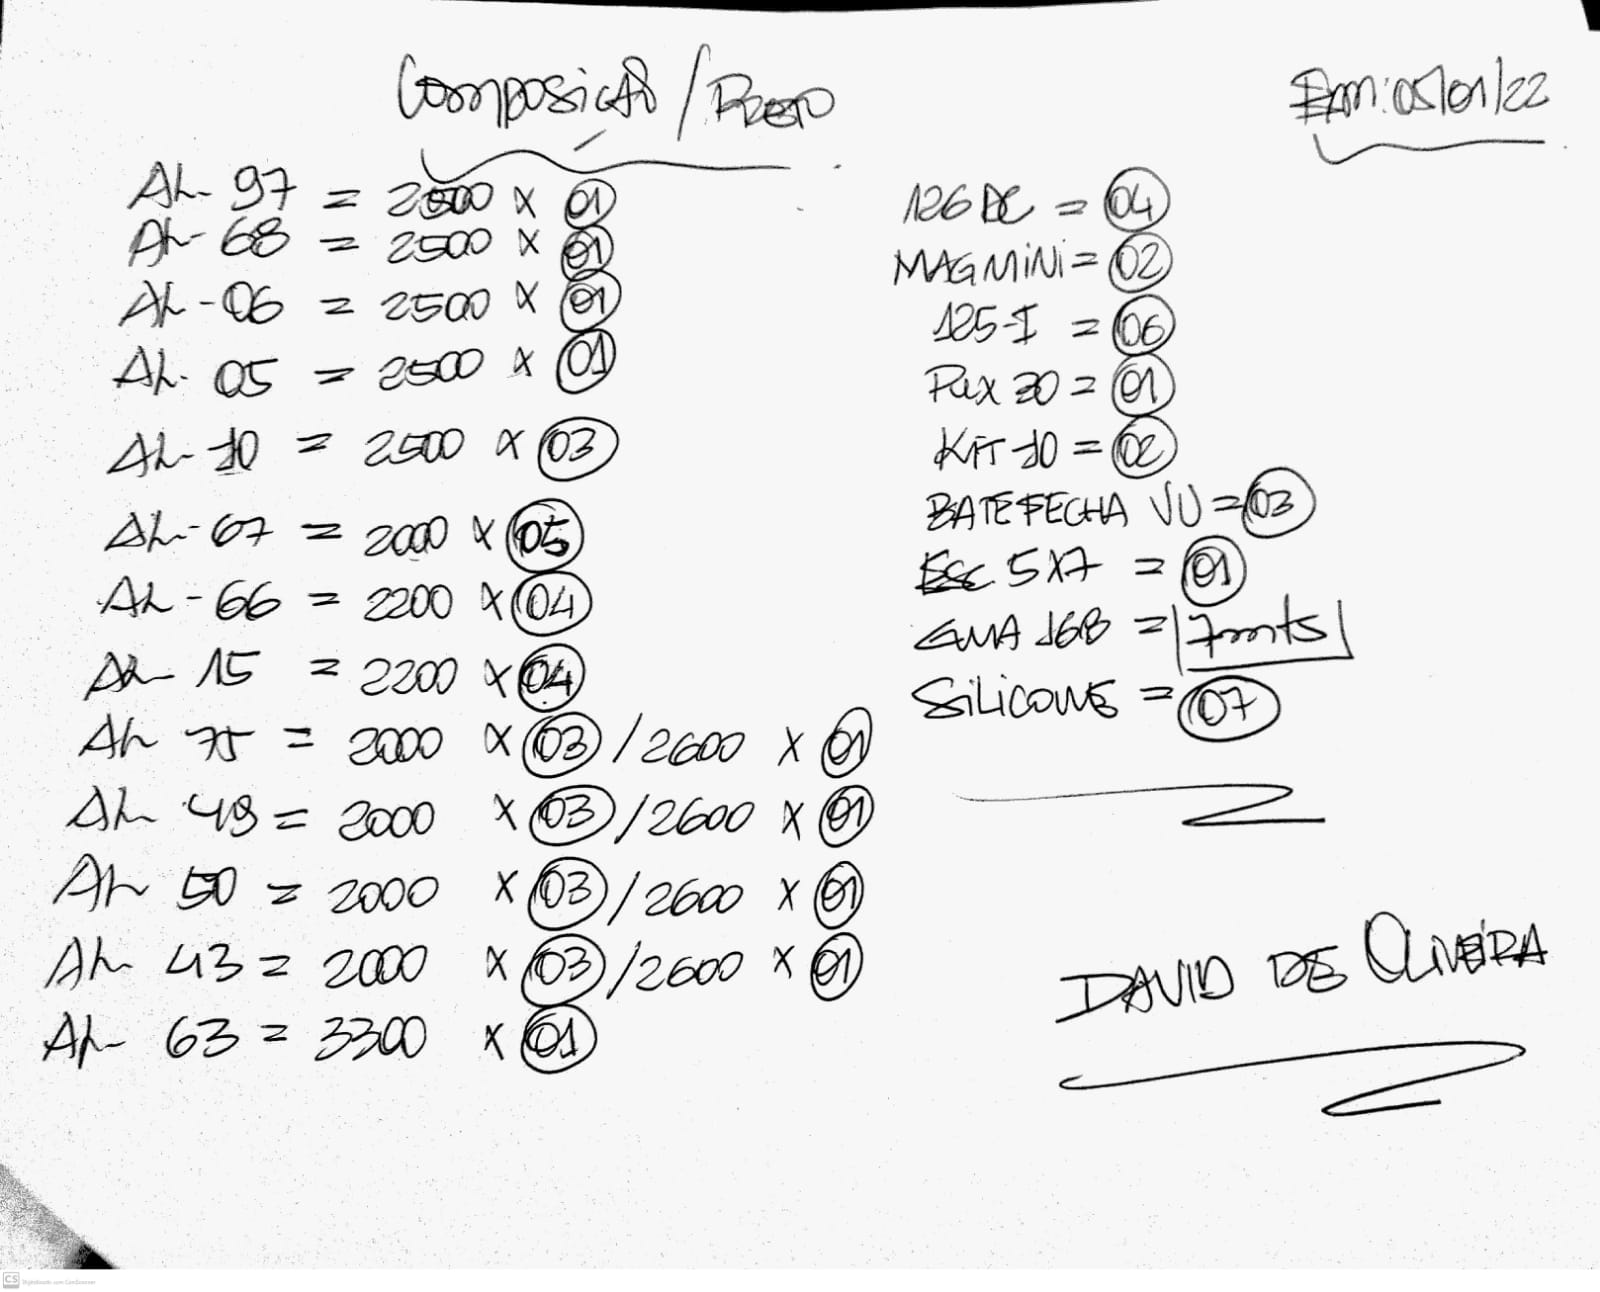 Composição / Preto
Em: 05/01/22
AL- 97 = 2500 x 01
AL- 68 = 2500 x 01
AL- 06 = 2500 x 01
AL- 05 = 2500 x 01
AL- 10 = 2500 x 03
AL- 67 = 2000 x 05
AL- 66 = 2200 x 04
AL- 15 = 2200 x 04
AL 75 = 2000 x 03 / 2600 x 01
AL 49 = 2000 x 03 / 2600 x 01
AL 50 = 2000 x 03 / 2600 x 01
AL 43 = 2000 x 03 / 2600 x 01
AL- 63 = 3300 x 01
126 DC = 04
MAG MiNi = 02
125-I = 06
Pux 30 = 01
KiT 10 = 02
BATE FECHA VU = 03
Esc 5X7 = 01
GUA 168 = 7 mts
SiLiCONE = 07
DAVID DE OLiVEiRA
CS Digitalizado com CamScanner